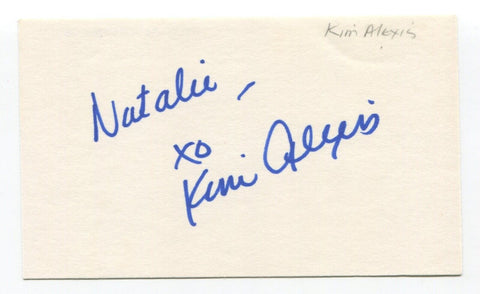 Kim Alexis
Natalie,
xo
Kim Alexis